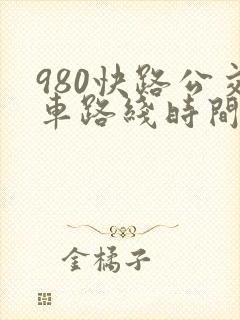 980快路公交
車路綫時間
金橘子